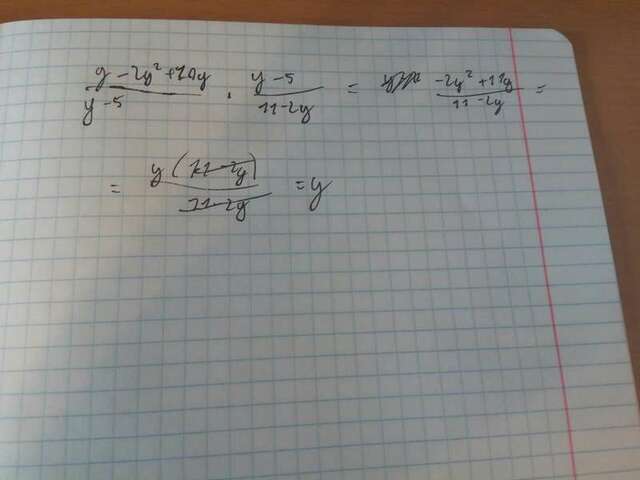 (y - 2y² + 10y)/(y - 5) · (y - 5)/(11 - 2y) = (-2y² + 11y)/(11 - 2y) =
= y(11 - 2y)/(11 - 2y) = y